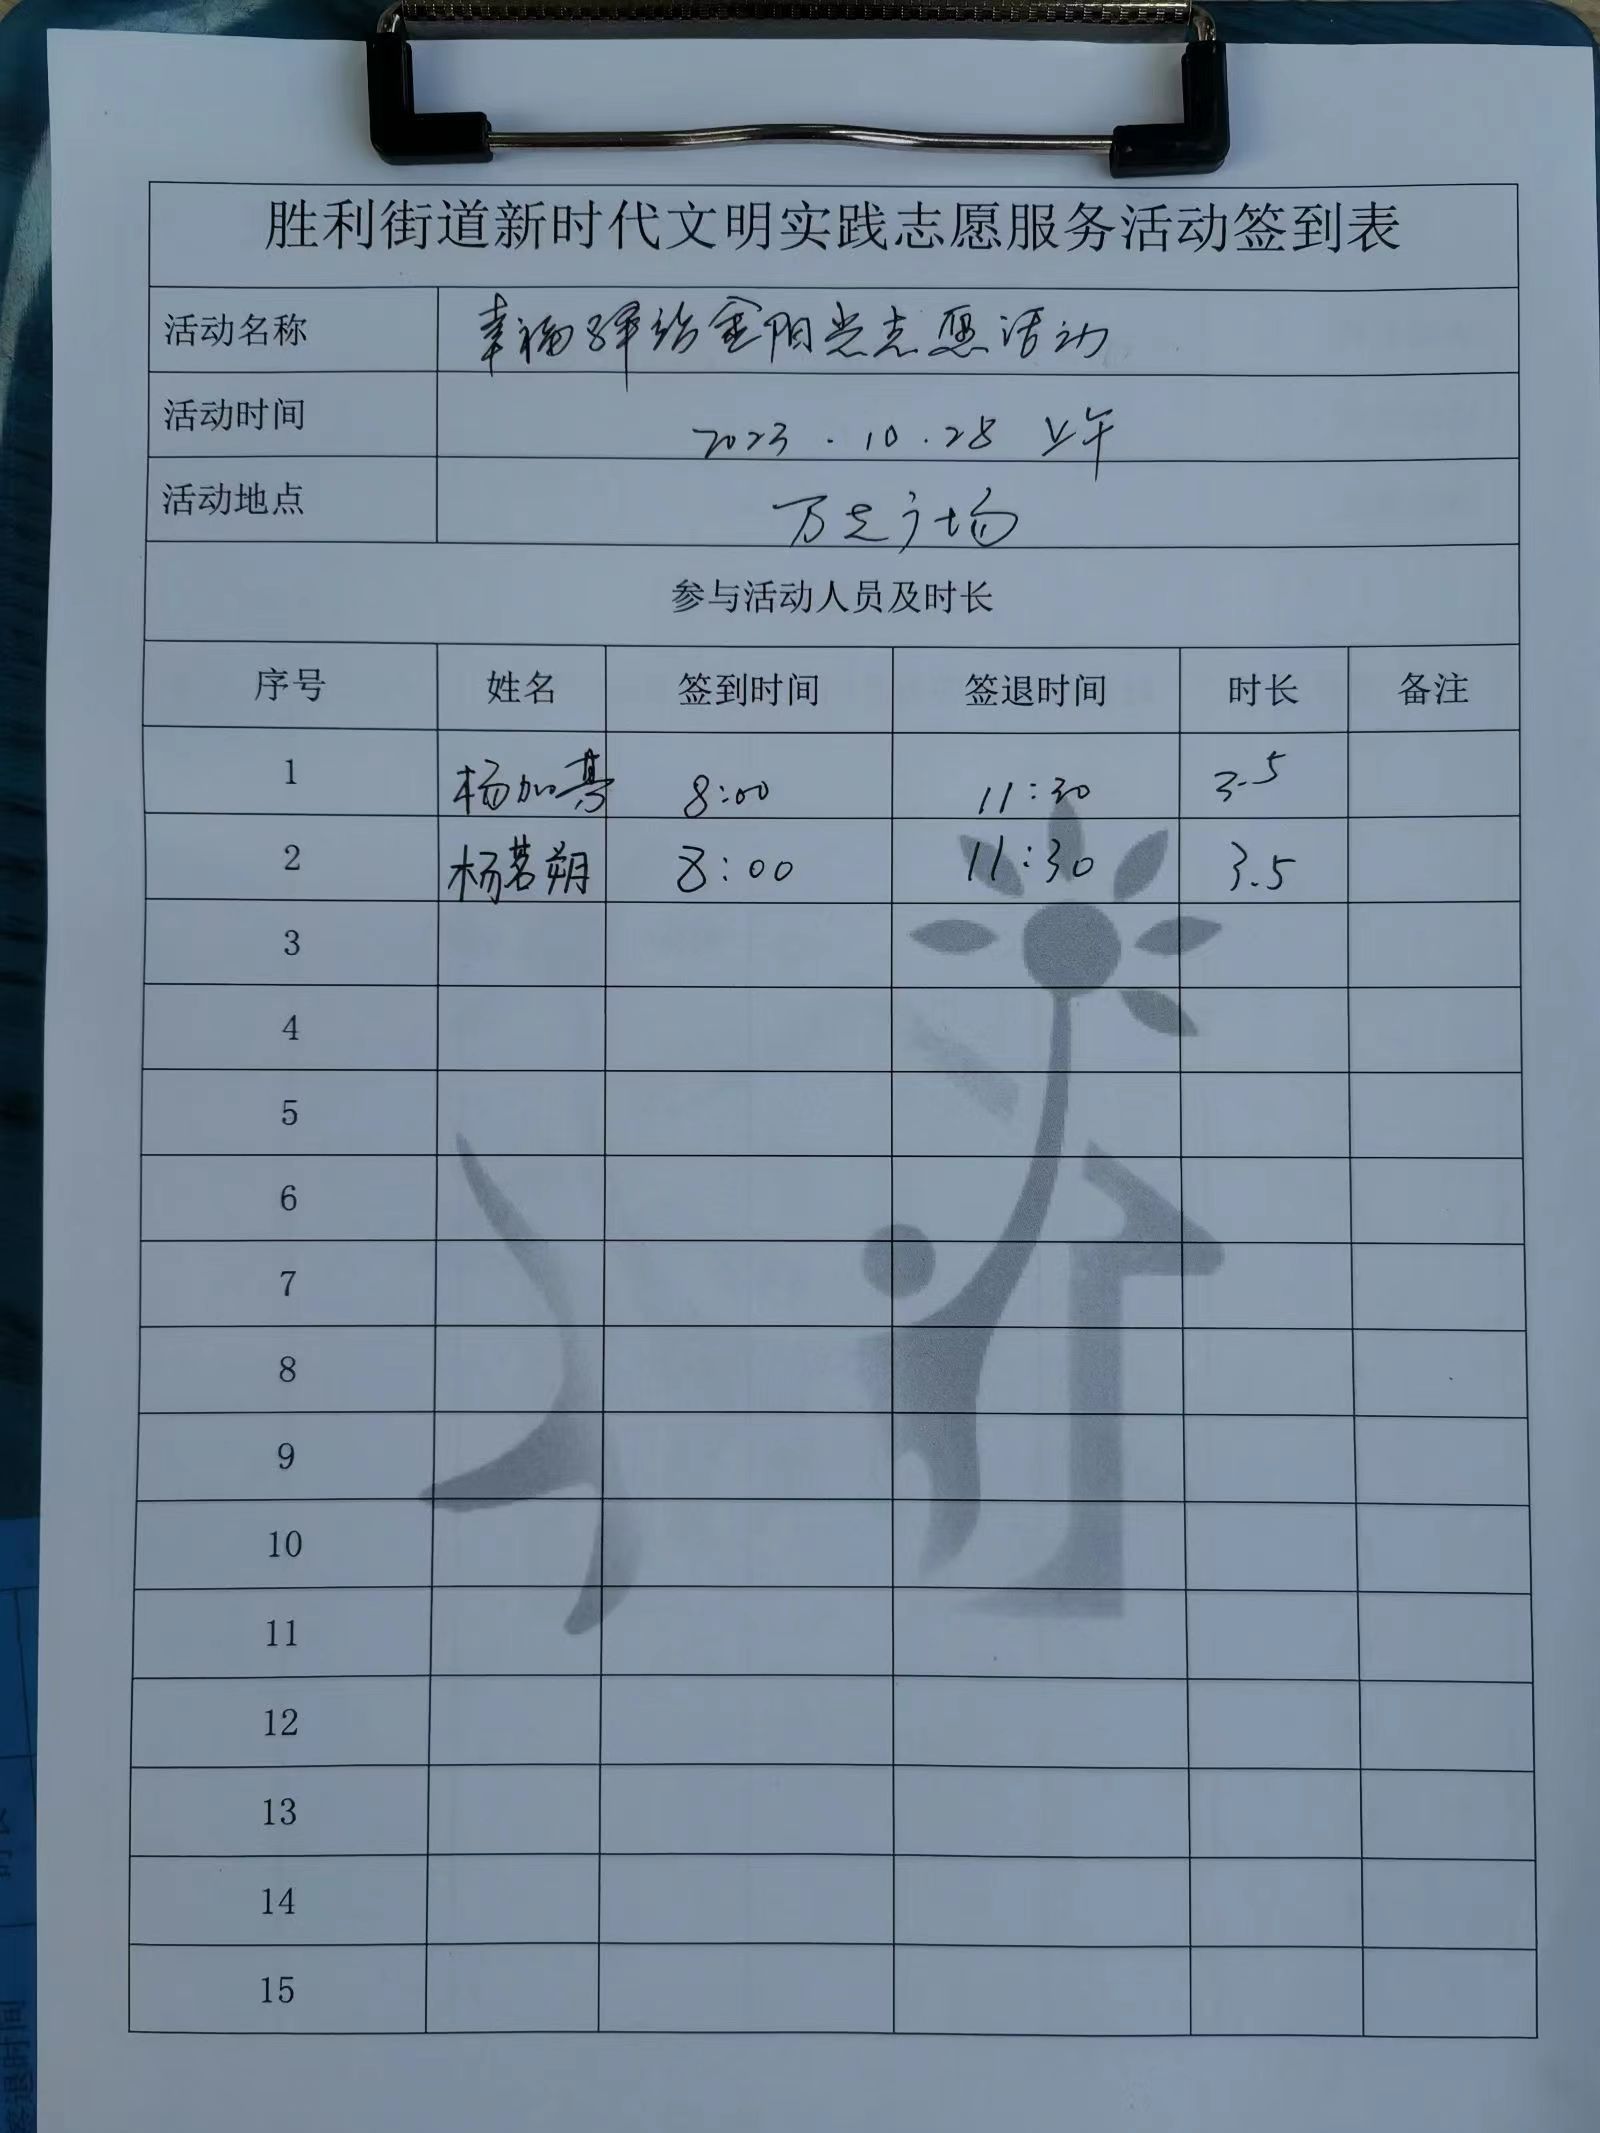 胜利街道新时代文明实践志愿服务活动签到表
活动名称 幸福驿站金阳光志愿活动
活动时间 2023.10.28 上午
活动地点 万达广场
参与活动人员及时长
序号 姓名 签到时间 签退时间 时长 备注
1 杨加 8:00 11:30 3.5
2 杨茗朔 8:00 11:30 3.5
3
4
5
6
7
8
9
10
11
12
13
14
15
签退时间